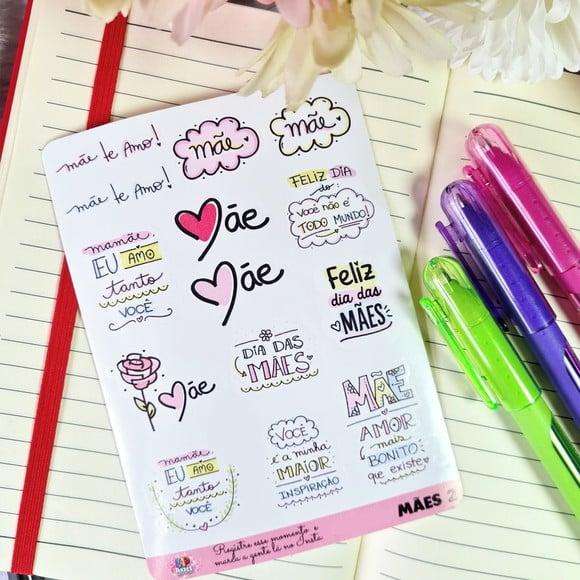 mãe te Amo!
mãe
mãe
mãe te Amo!
FELIZ DIA
do:
VOCÊ NÃO É
TODO MUNDO!
Mãe
mamãe
EU AMO
tanto
VOCÊ
Mãe
Feliz
dia das
MÃES
DIA DAS
MÃES
Mãe
MÃE
AMOR
mais
BONITO
que existe
VOCÊ
é a minha
MAIOR
INSPIRAÇÃO
mamãe
EU AMO
tanto
VOCÊ
MÃES 2
Registre esse momento e
marca a gente lá no Insta